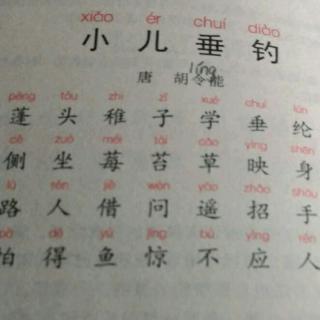 xiǎo ér chuí diào
小 儿 垂 钓
líng
唐 胡令能
péng tóu zhì zǐ xué chuí lún
蓬 头 稚 子 学 垂 纶
cè zuò méi tái cǎo yìng shēn
侧 坐 莓 苔 草 映 身
lù rén jiè wèn yáo zhāo shǒu
路 人 借 问 遥 招 手
pà dé yú jīng bù yìng rén
怕 得 鱼 惊 不 应 人